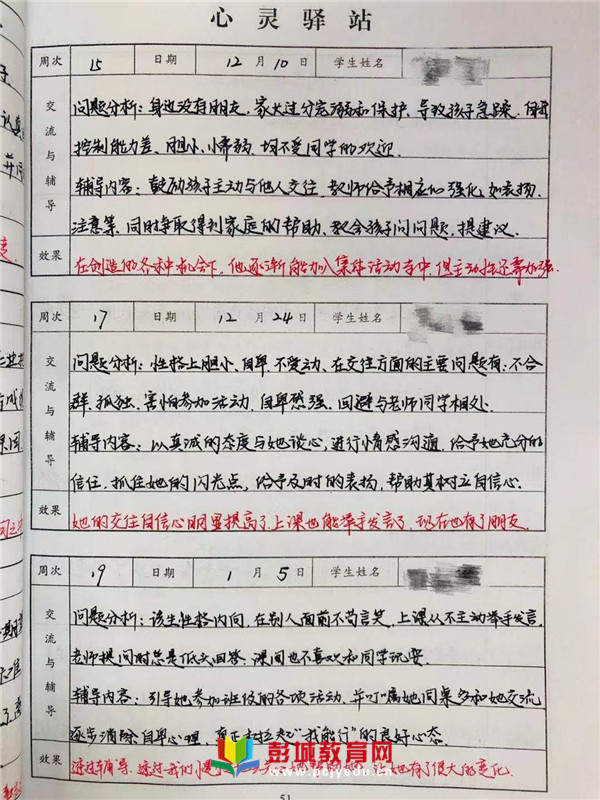 心灵驿站
周次 15 日期 12月10日 学生姓名
交流与辅导
问题分析：身边没有朋友，家长过分宠溺和保护，导致孩子急躁、自我
控制能力差、胆小、懦弱，均不受同学的欢迎。
辅导内容：鼓励孩子主动与他人交往，教师给予相应的强化，如表扬、
注意等，同时争取得到家庭的帮助、教会孩子问问题、提建议。
效果 在创造的各种机会下，他逐渐能加入集体活动当中，但主动性还需加强。
周次 17 日期 12月24日 学生姓名
交流与辅导
问题分析：性格上胆小、自卑、不爱动，在交往方面的主要问题有：不合
群、孤独、害怕参加活动、自卑感强，回避与老师同学相处。
辅导内容：以真诚的态度与她谈心，进行情感沟通，给予她充分的
信任，抓住她的闪光点，给予及时的表扬，帮助其树立自信心。
效果 她的交往自信心明显提高了，上课也能举手发言了，现在也有了朋友。
周次 19 日期 1月5日 学生姓名
交流与辅导
问题分析：该生性格内向，在别人面前不苟言笑，上课从不主动举手发言，
老师提问时总是低头回答，课间也不喜欢和同学玩耍。
辅导内容：引导她参加班级的各项活动，并叮嘱她同桌多和她交流，
逐步消除自卑心理，真正树起“我能行”的良好心态。
效果 通过辅导，透过我们 让她有了很大的变化。
彭城教育网
www.pcjyedu.cn
51